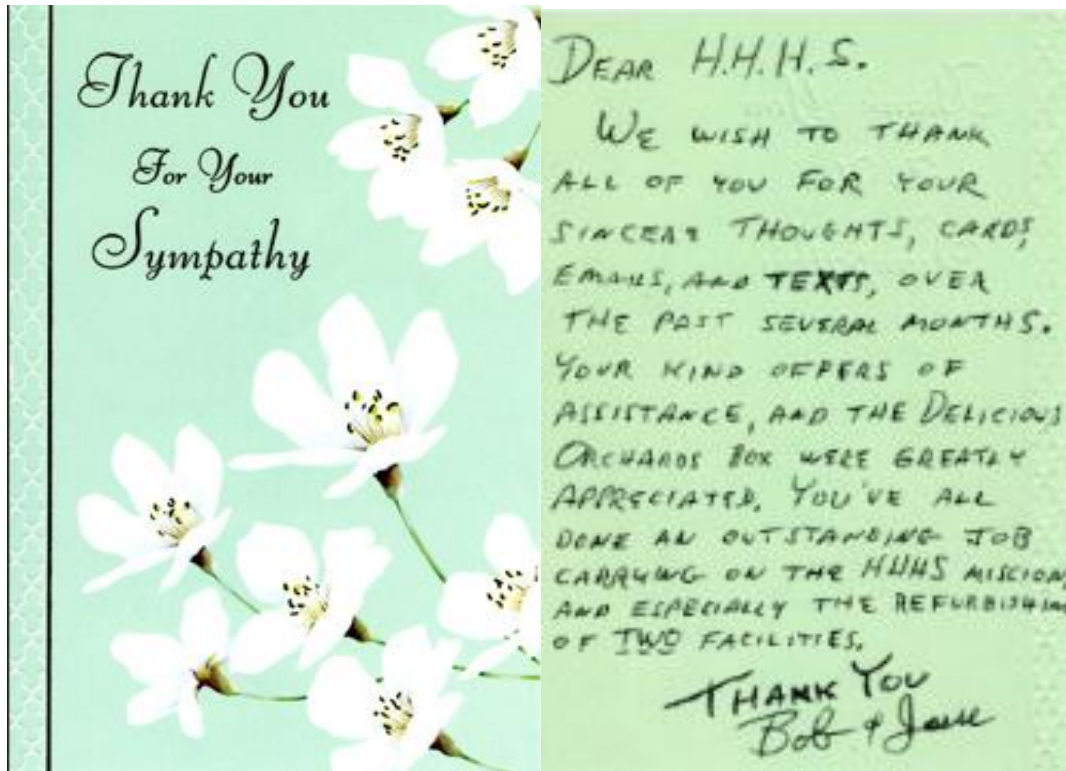 Thank You
For Your
Sympathy
DEAR H.H.H.S.
WE WISH TO THANK
ALL OF YOU FOR YOUR
SINCERE THOUGHTS, CARDS,
EMAILS, AND TEXTS, OVER
THE PAST SEVERAL MONTHS.
YOUR KIND OFFERS OF
ASSISTANCE, AND THE DELICIOUS
ORCHARDS BOX WERE GREATLY
APPRECIATED. YOU'VE ALL
DONE AN OUTSTANDING JOB
CARRYING ON THE HHHS MISSION,
AND ESPECIALLY THE REFURBISHIN
OF TWO FACILITIES.
THANK YOU
Bob &